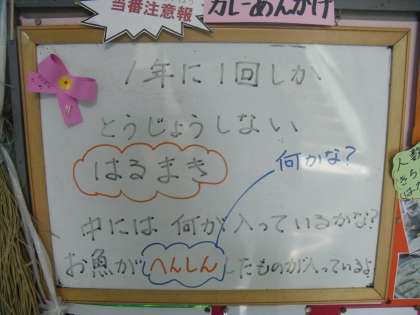 当番注意報
カレーあんかけ
1年に1回しか
とうじょうしない
はるまき
何かな?
中には何が入っているかな?
お魚がへんしんしたものが入っているよ